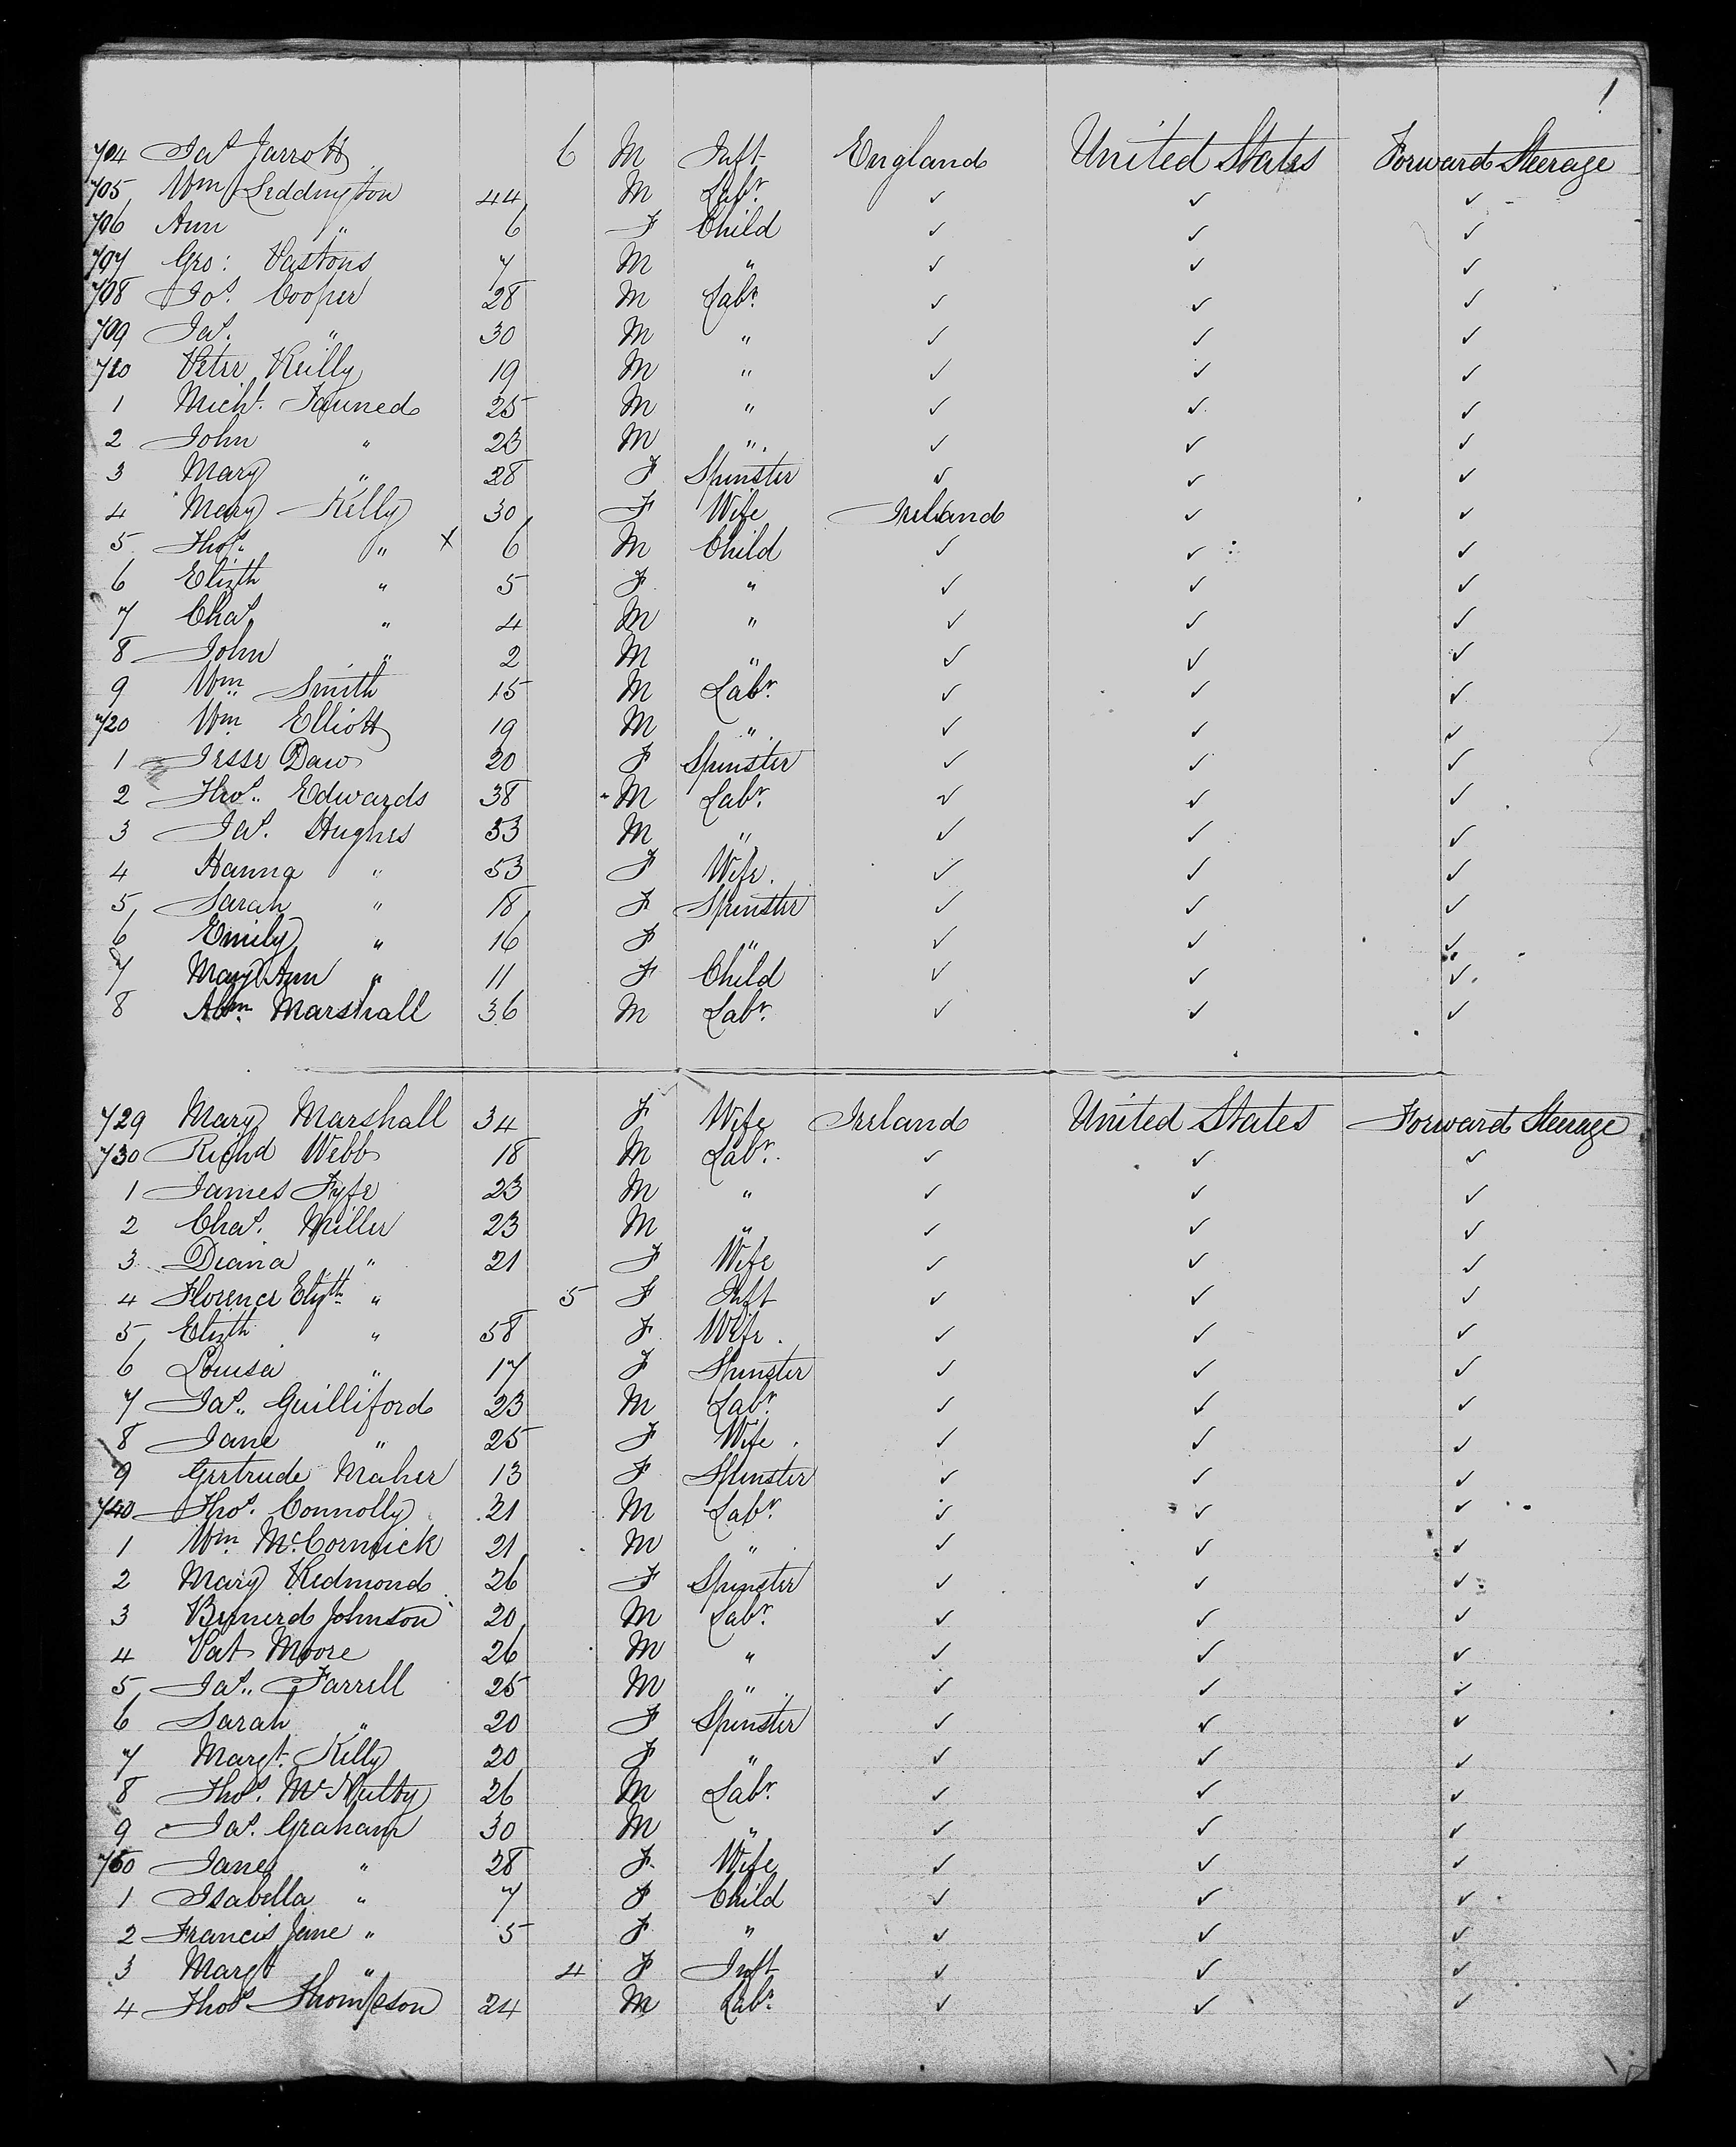 1
704 Jas Jarrott 6 M Inft England United States Forward Steerage
705 Wm Leddington 44 M Labr. ✓ ✓ ✓
706 Ann " 6 F Child ✓ ✓ ✓
707 Geo: Vastons 7 M " ✓ ✓ ✓
708 Jos. Cooper 28 M Labr. ✓ ✓ ✓
709 Jas. " 30 M " ✓ ✓ ✓
710 Peter Reilly 19 M " ✓ ✓ ✓
1 Michl. 25 M " ✓ ✓ ✓
2 John " 23 M " ✓ ✓ ✓
3 Mary " 28 F Spinster ✓ ✓ ✓
4 Mary Kelly 30 F Wife Ireland ✓ ✓
5 Thos. " X 6 M Child ✓ ✓ ✓
6 Elizth " 5 F " ✓ ✓ ✓
7 Chas. " 4 M " ✓ ✓ ✓
8 John " 2 M " ✓ ✓ ✓
9 Wm. Smith 15 M Labr. ✓ ✓ ✓
720 Wm. Elliott 19 M " ✓ ✓ ✓
1 Jesse Daw 20 F Spinster ✓ ✓ ✓
2 Thos. Edwards 38 M Labr. ✓ ✓ ✓
3 Jas. Hughes 53 M " ✓ ✓ ✓
4 Hanna " 53 F Wife. ✓ ✓ ✓
5 Sarah " 18 F Spinster ✓ ✓ ✓
6 Emily " 16 F " ✓ ✓ ✓
7 Mary Ann " 11 F Child ✓ ✓ ✓
8 Abm. Marshall 36 M Labr. ✓ ✓ ✓
729 Mary Marshall 34 F Wife Ireland United States Forward Steerage
730 Richd Webb 18 M Labr. ✓ ✓ ✓
1 James Fyfe 23 M " ✓ ✓ ✓
2 Chas. Miller 23 M " ✓ ✓ ✓
3 Diana " 21 F Wife ✓ ✓ ✓
4 Florence Elizth " 5 F Inft ✓ ✓ ✓
5 Elizth " 58 F Wife. ✓ ✓ ✓
6 Louisa " 17 F Spinster ✓ ✓ ✓
7 Jas. Guilliford 23 M Labr. ✓ ✓ ✓
8 Jane " 25 F Wife. ✓ ✓ ✓
9 Gertrude Maher 13 F Spinster ✓ ✓ ✓
740 Thos. Connolly 21 M Labr. ✓ ✓ ✓
1 Wm. McCormick 21 M " ✓ ✓ ✓
2 Mary Redmond 26 F Spinster ✓ ✓ ✓
3 Bernerd Johnson 20 M Labr. ✓ ✓ ✓
4 Pat Moore 26 M " ✓ ✓ ✓
5 Jas. Farrell 25 M " ✓ ✓ ✓
6 Sarah " 20 F Spinster ✓ ✓ ✓
7 Margt. Kelly 20 F " ✓ ✓ ✓
8 Thos. McNulty 26 M Labr. ✓ ✓ ✓
9 Jas. Graham 30 M " ✓ ✓ ✓
750 Jane " 28 F Wife ✓ ✓ ✓
1 Isabella " 7 F Child ✓ ✓ ✓
2 Francis Jane " 5 F " ✓ ✓ ✓
3 Margt " 4 F Inft ✓ ✓ ✓
4 Thos. Thompson 24 M Labr. ✓ ✓ ✓